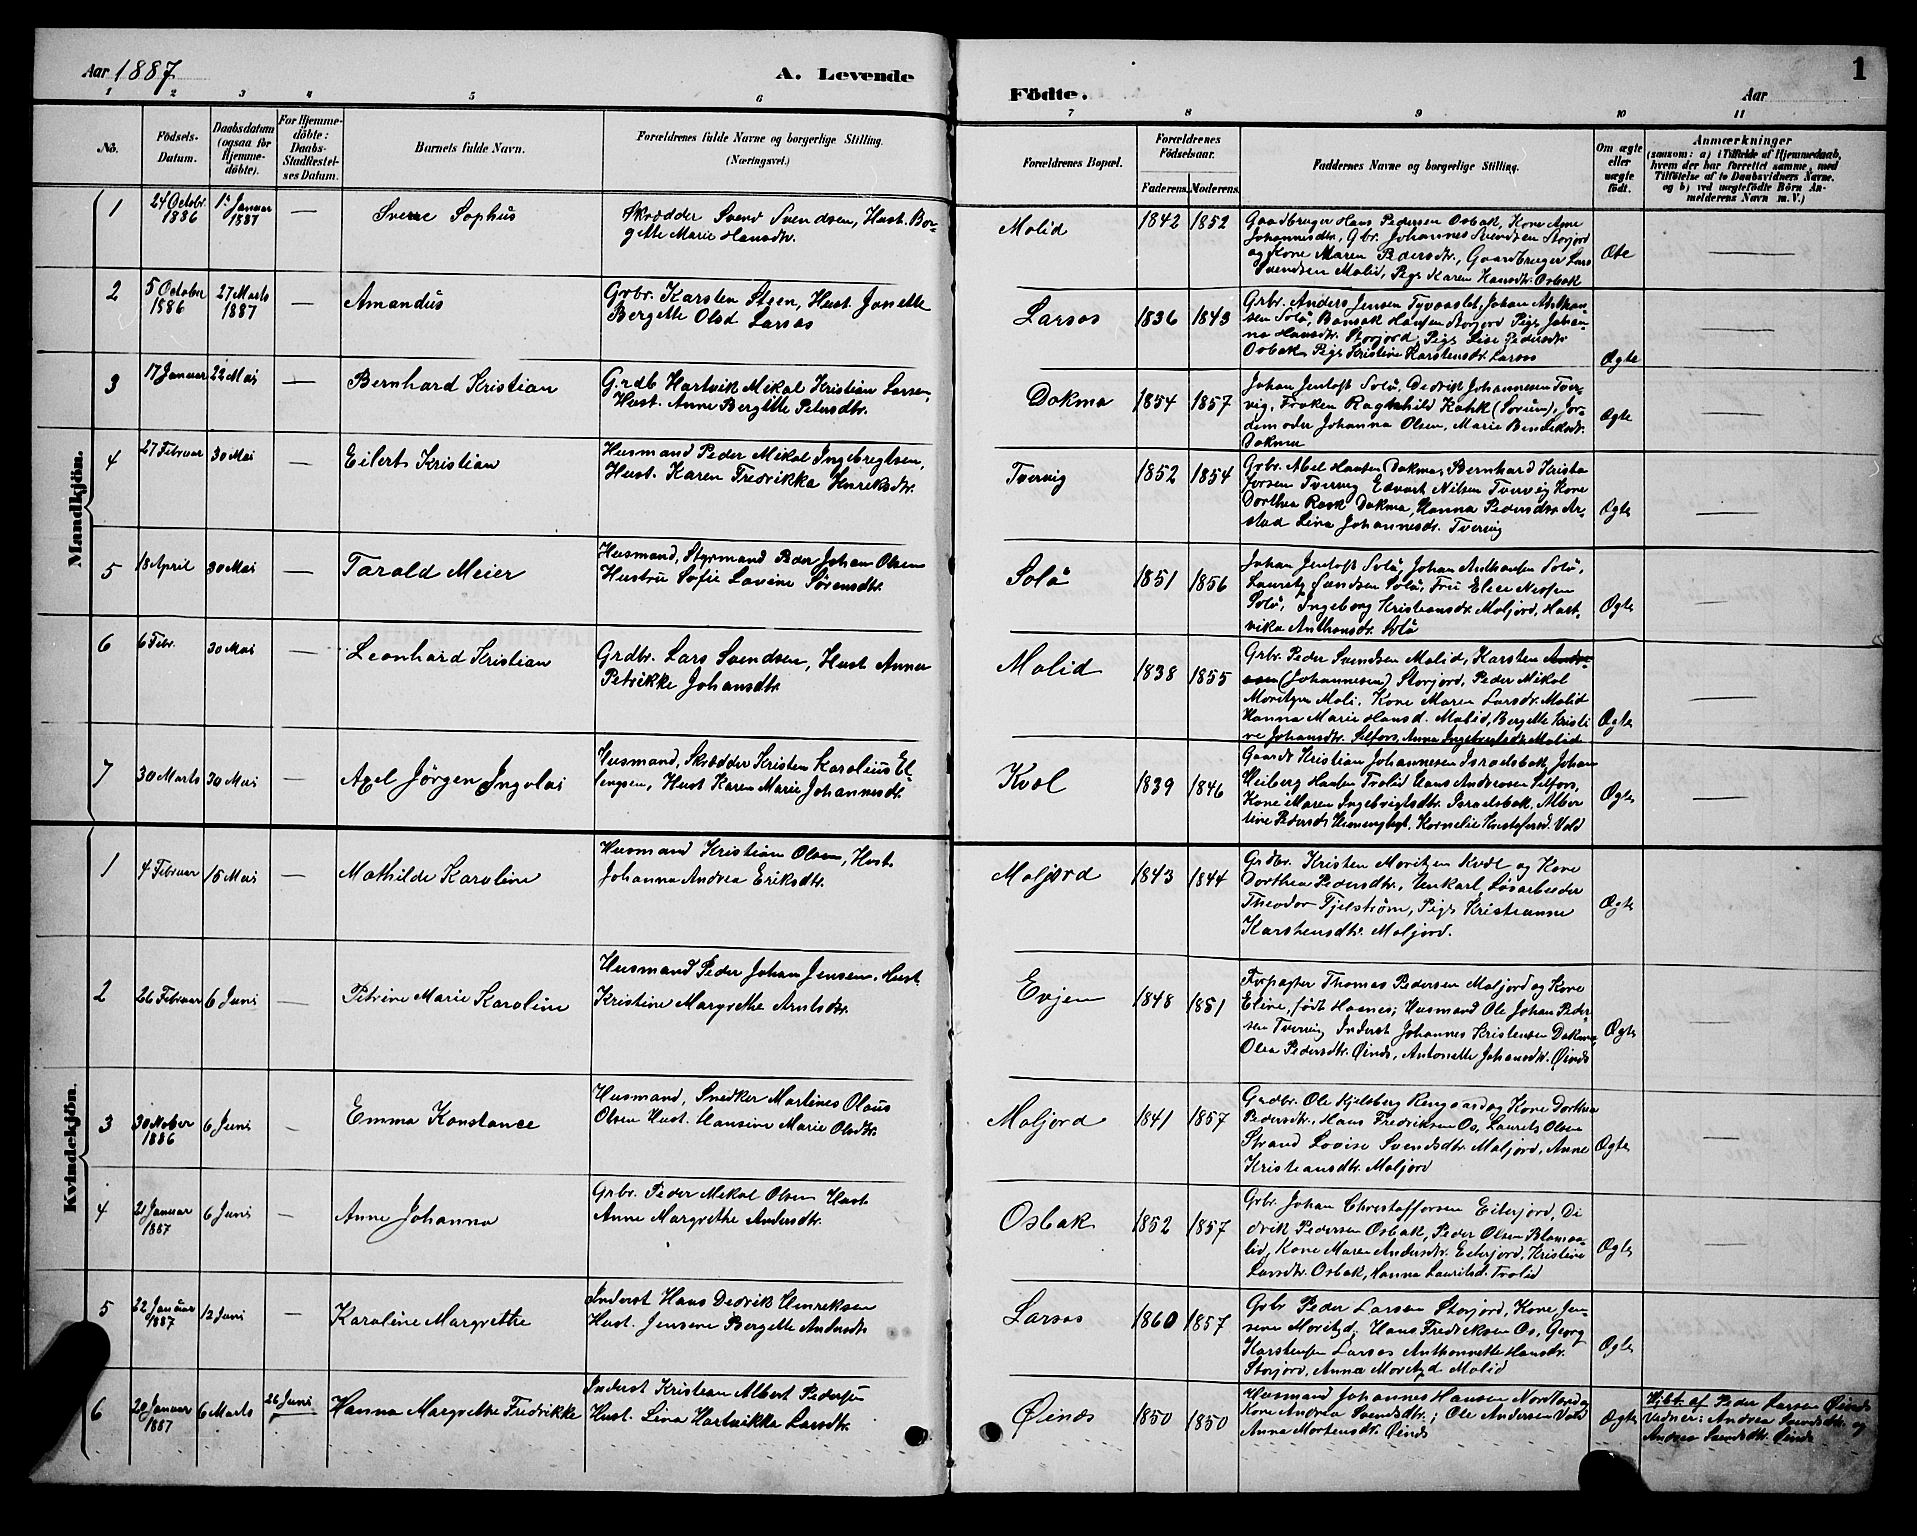 Aar 1887
A. Levende
Födte.
Aar
1
1 2 3 4 5 6 7 8 9 10 11
No.
Födsels-
Datum.
Daabsdatum
(ogsaa for
Hjemme-
döbte).
For Hjemme-
döbte:
Daabs-
Stadfestel-
ses Datum.
Barnets fulde Navn.
Forældrenes fulde Navne og borgerlige Stilling.
(Næringsvei.)
Forældrenes Bopæl.
Forældrenes
Födselsaar.
Faderens. Moderens.
Faddernes Navne og borgerlige Stilling.
Om ægte
eller
uægte
födt.
Anmærkninger
(saasom: a) i Tilfælde af Hjemmedaab,
hvem der har forrettet samme, med
Tilföielse af to Daabsvidners Navne,
og b) ved uægtefödte Börn An-
melderens Navn m. V.)
Mandkjön.
1
24 Octobr.
1886
1. Januar
1887
—
Sverre Sophus
Skrædder Svend Svendsen, Hust. Bo-
gette Marie Hansdtr.
Molid
1842 1852
Gaardbruger Hans Pedersen Osbak, Kone Ane
Johannesdtr, Gbr. Johannes Svendsen Storjord
og Kone Maren Pedersdtr, Gaardbruger Lars
Svendsen Molid, Pige Karen Hansdtr. Osbak
—
2
5 October
1886
27 Marts
1887
—
Amandus
Grbr. Karsten Steen, Hust. Janette
Bergette Olsd Larsos
Larsos
1836 1843
Grbr. Anders Jensen Tyvaaslet, Johan Anthon-
sen Solö, Hansen Storjord Pige Johan-
na Hansdtr. Storjord, Pige Lise Pedersdtr
Osbak, Pige Kristine Karstensdtr. Larsos
Ægte
—
3
17 Januar
22 Mai
—
Bernhard Kristian
Grdb Hartvik Mikal Kristian Larsen,
Hust. Anne Bergitte Petersdtr.
Dokmo
1854 1857
Johan Jentoft Solö, Dedrik Johannesen Tver-
vig, Frøken Ragnhild Kahk (Sorum), Jor-
demoder Johanna Olsen, Marie Bendiksdtr.
Dokmo
Ægte
—
4
27 Februar
30 Mai
—
Eilert Kristian
Husmand Peder Mikal Ingebregtsen,
Hust. Karen Fredrikka Henriksdtr.
Tvervig
1852 1854
Grbr. Abel Hansen Dokmo, Bernhard Kristo
fersen Tvervig Edvart Nilsen Tvervig Kone
Dorthea Rask Dokmo, Hanna Pedersdtr Ar-
stad Lina Johannesdtr. Tvervig
Ægte
—
5
18 April
30 Mai
—
Tarald Meier
Husmand, Styrmand Peder Johan Olsen
Hustru Sofie Lovine Sörensdtr.
Solö
1851 1856
Johan Jentoft Solö, Johan Anthonsen Solö,
Lauretz Svendsen Solö, Fru Elise
Solö, Ingeborg Kristiansdtr. Moljord, Hart-
vika Anthonsdtr. Solö
Ægte
—
6
6 Febr.
30 Mai
—
Leonhard Kristian
Grdbr. Lars Svendsen, Hust Anne
Petrikke Johansdtr.
Molid
1838 1855
Grbr. Peder Svendsen Molid, Karsten Andre-
asen (Johannesen) Storjord, Peder Mikal
Moritzen Moli. Kone Maren Larsdtr. Molid
Hanna Marie Hansd. Molid, Bergette Kristi
ne Johansdtr. Selfors, Anna Ingebrigtsdtr Molid
Ægte
—
7
30 Marts
30 Mai
—
Axel Jörgen Ingolai
Husmand, Skrædder Kristen Karolius El-
lingsen, Hust Karen Marie Johannesdtr.
Kvol
1839 1846
Gaardb Kristian Johannesen Israelsbak, Johan
Weiberg Hansen Trolid Hans Andersen Selfors,
Kone Maren Ingebrigtsdtr. Israelsbak, Alber
tine Pedersdtr Kornelie Kristofersd. Vold
Ægte
—
Kvindekjön.
1
4 Februar
15 Mai
—
Mathilde Karoline
Husmand Kristian Olsen, Hust.
Johanna Andrea Eriksdtr.
Moljord
1843 1844
Grdbr. Kristen Moritzen Kvol og Kone
Dorthea Pedersdtr., Unkarl, Løsarbeider
Theodor Fjelström, Pige Kristianne
Karstensdtr. Moljord.
Ægte
—
2
26 Februar
6 Juni
—
Petrine Marie Karoline
Husmand Peder Johan Jensen, Hust
Kristine Margrethe Arntsdtr.
Evjen
1848 1851
Forpagter Thomas Pedersen Moljord og Kone
Eline, født Hasnes; Husmand Ole Johan Peder-
sen Tvervig Inderst Johannes Kristensen Dokmo,
Olea Pedersdtr. Øines, Antonette Johansdtr. Øines
Ægte
—
3
30 October
1886
6 Juni
—
Emma Konstance
Husmand, Snedker Martines Olaus
Olsen Hust. Hansine Marie Olsdtr.
Moljord
1841 1857
Grdbr. Ole Kjelsberg Rengaard og Kone Dorthea
Pedersdtr, Hans Fredriksen Os, Laurets Olsen
Strand Lovise Svendsdtr Moljord, Anne
Kristiansdtr. Moljord
Ægte
—
4
21 Januar
1887
6 Juni
Anne Johanna
Grbr. Peder Mikal Olsen Hust
Anne Margrethe Andersdtr.
Osbak
1852 1857
Grbr. Johan Christoffersen Eiterjord, Di
drik Pedersen Osbak, Peder Olsen Blomaa-
lid, Kone Maren Andersdtr. Eiterjord, Kristine
Larsdtr. Osbak, Hanna Lauritsd. Trolid
Ægte
—
5
22 Januar
1887
12 Juni
—
Karoline Margrethe
Inderst Hans Dedrik Henriksen
Hust. Jensine Bergette Andersdtr
Larsos
1860 1857
Grbr Peder Larsen Storjord, Kone Jen-
sine Moritzd; Hans Fredriksen Os, Georg
Karstensen Larsos Anthonette Hansdtr.
Storjord, Anna Moritzd Molid
Ægte
—
6
20 Januar
1887
6 Marts
26 Juni
Hanna Margrethe Fredrikke
Inderst Kristian Albert Pedersen
Hust. Lina Hartvikke Larsdtr.
Øines
1850 1850
Husmand Johannes Hansen Nordland og
Kone Andrea Svendsdtr; Ole Andersen Vold
Anna Mortensdtr. Øines
Ægte
Hjdt. af Peder Larsen Øines
Vidner: Andrea Svendsdtr. og
Andrea Svendsdtr. Øines